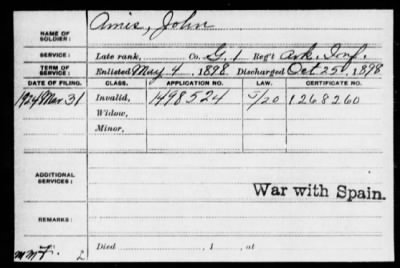 NAME OF SOLDIER: Amis, John
SERVICE: Late rank, Co. G. 1 Reg't Ark. Inf.
TERM OF SERVICE: Enlisted May 4, 1898 Discharged Oct 25, 1898
DATE OF FILING. CLASS. APPLICATION NO. LAW. CERTIFICATE NO.
1924 Mar 31 Invalid, 1498524 5/20 1268260
Widow,
Minor,
ADDITIONAL SERVICES:
War with Spain.
REMARKS:
Died , 1 , at
2